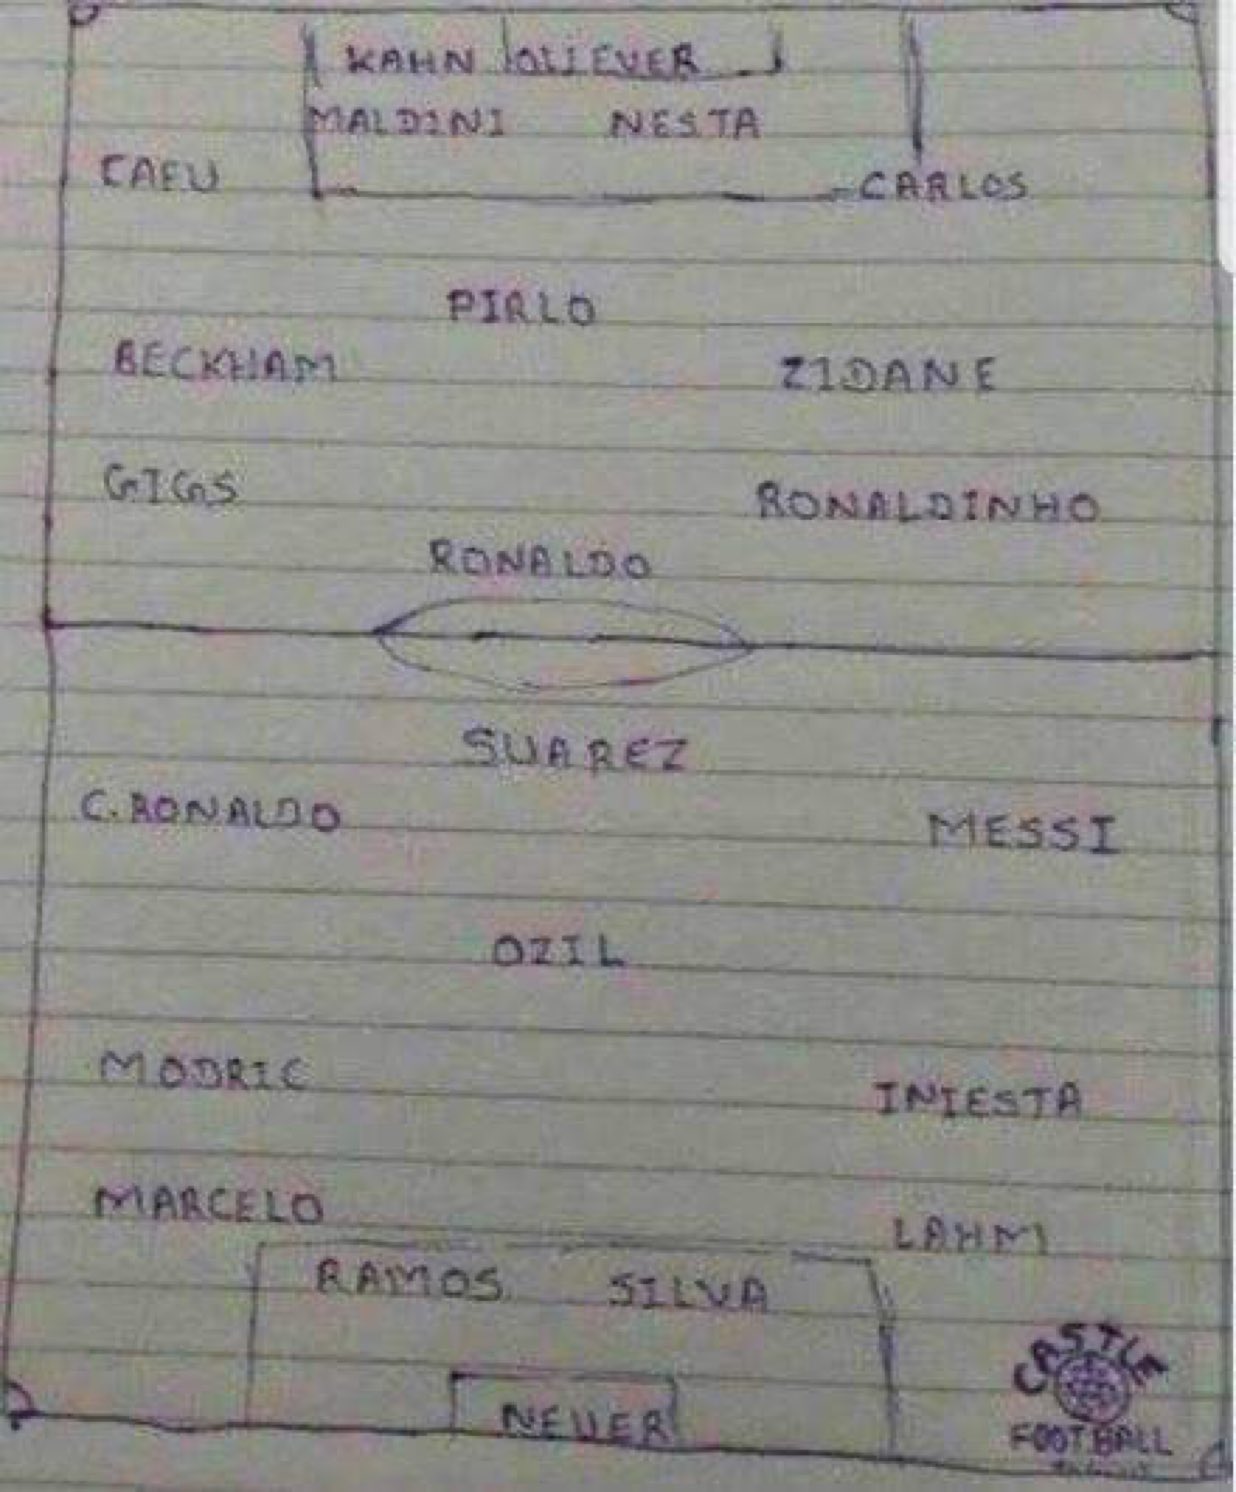 KAHN OLIEVER
MALDINI NESTA
CAFU
CARLOS
PIRLO
BECKHAM
ZIDANE
GIGS
RONALDINHO
RONALDO
SUAREZ
C. RONALDO
MESSI
OZIL
MODRIC
INIESTA
MARCELO
LAHM
RAMOS SILVA
CASTLE
NEUER
FOOTBALL